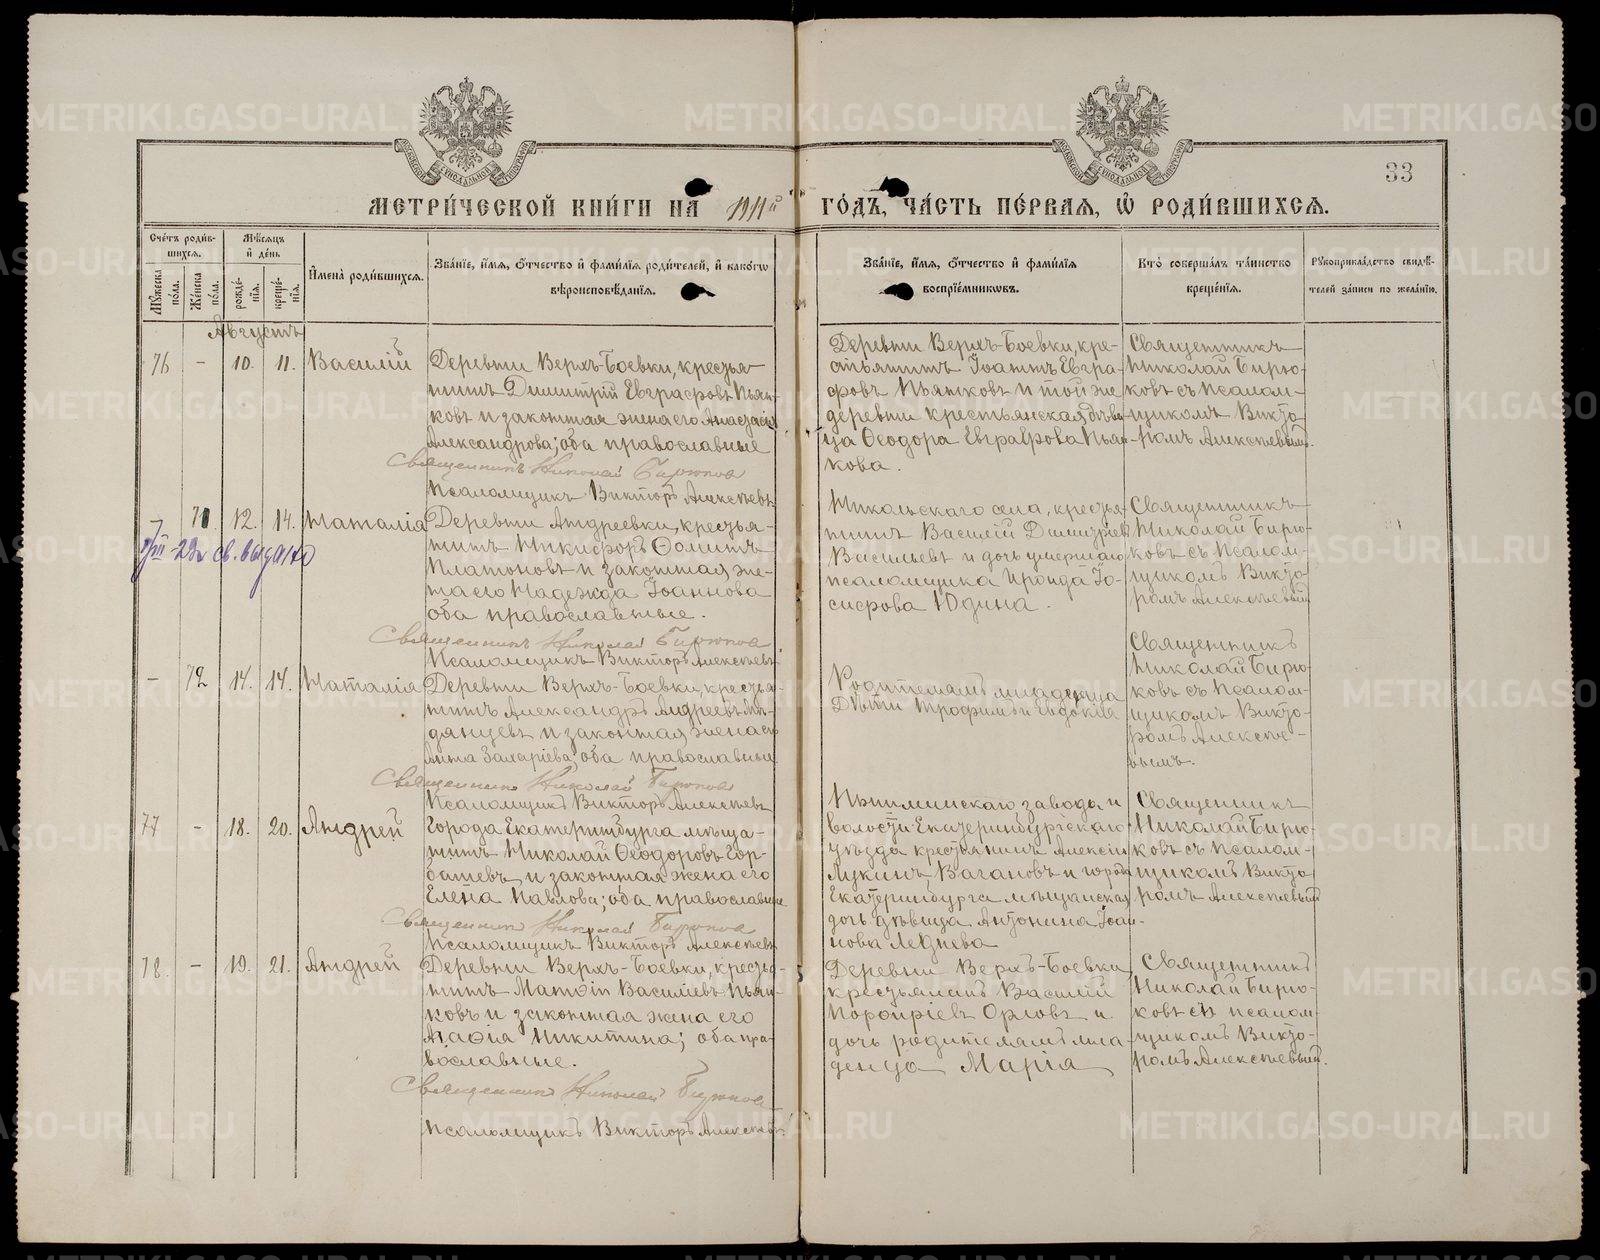 33
МЕТРИ́ЧЕСКОЙ КНИ́ГИ НА 1911й ГО́ДЪ, ЧА́СТЬ ПЕ́РВАЯ, Ѡ РОДИ́ВШИХСЯ.
Сче́тъ роди́в-
шихся.
Му́жеска по́ла.
Же́нска по́ла.
Мѣ́сяцъ
и҆ де́нь
рожде́-
нїя.
креще́-
нїя.
И҆мена̀ роди́вшихся.
Зва́нїе, и҆́мя, ѻ҆́тчество и҆ фамн́лїя роди́телей, и҆ како́гѡ
вѣроисповѣ́данїя.
Зва́нїе, и҆́мя, ѻ҆́тчество и҆ фами́лїя
воспрїе́мниковъ.
Кто̀ соверша́лъ та́инство
креще́нїя.
Рукоприкла́дство свидѣ́-
телей за́писи по жела́нїю.
Августъ
76 - 10. 11. Василій
Деревни Верхъ-Боевки, крестья-
нинъ Димитрій Евграфовъ Пьян-
ковъ и законная жена его Анастасія
Александрова; оба православные
Священникъ Николай Бирюков
Псаломщикъ Викторъ Алексѣевъ
Деревни Верхъ-Боевки, кре-
стьянинъ Іоаннъ Евгра-
фовъ Пьянковъ и той же
деревни крестьянская дѣви-
ца Ѳеодора Евграфова Пьян-
кова.
Священникъ
Николай Бирю-
ковъ съ псалом-
щикомъ Викто-
ромъ Алексѣевымъ.
71. 12. 14. Наталія
св. выдано
Деревни Андреевки, крестья-
нинъ Никифоръ Ѳоминъ
Платоновъ и законная же-
на его Надежда Іоаннова
оба православные.
Священникъ Николай Бирюков
Псаломщикъ Викторъ Алексѣевъ
Никольскаго села, крестья-
нинъ Василій Димитріевъ
Васильевъ и дочь умершаго
псаломщика Ираида Іо-
сифова Юдина.
Священникъ
Николай Бирю-
ковъ съ псалом-
щикомъ Викто-
ромъ Алексѣевымъ
- 72 14. 14. Наталія
Деревни Верхъ-Боевки, крестья-
нинъ Александръ Андреевъ
и законная жена его
Анна Захаріева; оба православные
Священникъ Николай Бирюков
Псаломщикъ Викторъ Алексѣевъ
Родителямъ младенца
Дѣти Трофимъ и Евдокія
Священникъ
Николай Бирю-
ковъ съ псалом-
щикомъ Викто-
ромъ Алексѣе-
вымъ.
77 - 18. 20. Андрей
Города Екатеринбурга мѣща-
нинъ Николай Ѳеодоровъ Гор-
бачевъ и законная жена его
Елена Павлова; оба православные
Священникъ Николай Бирюков
Псаломщикъ Викторъ Алексѣевъ
Пышминскаго завода и
волости Екатеринбургскаго
уѣзда крестьянинъ Алексѣй
Лукинъ Вагановъ и города
Екатеринбурга мѣщанская
дочь дѣвица Антонина Іоан-
нова Леднева
Священникъ
Николай Бирю-
ковъ съ псалом-
щикомъ Викто-
ромъ Алексѣевымъ
78. - 19. 21. Андрей
Деревни Верхъ-Боевки, крестья-
нинъ Матѳій Василіевъ Пьян-
ковъ и законная жена его
Агафія Никитина; оба пра-
вославные.
Священникъ Николай Бирюков
Псаломщикъ Викторъ Алексѣевъ
Деревни Верхъ-Боевки,
крестьянинъ Василій
Порфиріевъ Орловъ и
дочь родителямъ мла-
денца Марія
Священникъ
Николай Бирю-
ковъ съ псалом-
щикомъ Викто-
ромъ Алексѣевымъ.
METRIKI.GASO-URAL.RU